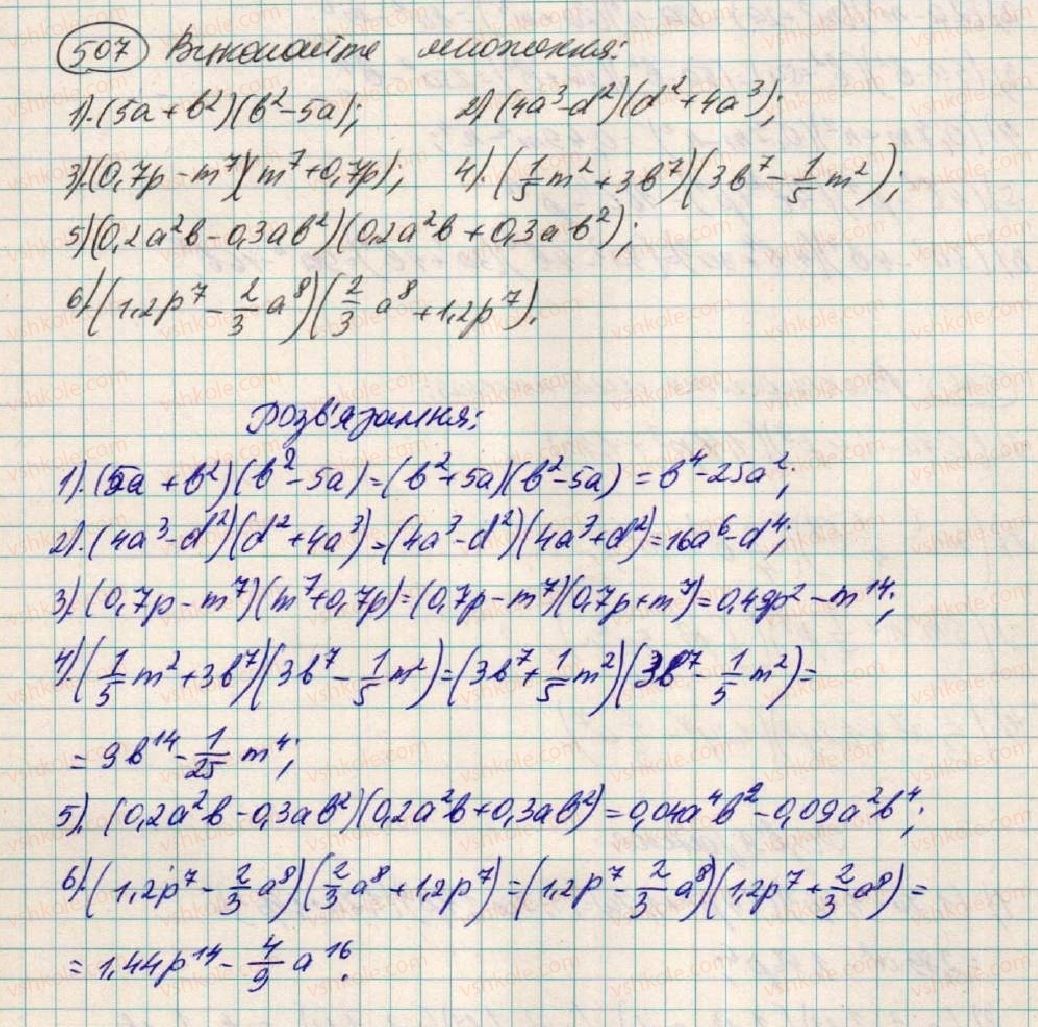 507 Виконайте множення:
1). (5a + b²)(b² - 5a); 2) (4a³ - d²)(d² + 4a³);
3). (0,7p - m⁷)(m⁷ + 0,7p); 4). (1/5 m² + 3b⁷)(3b⁷ - 1/5 m²);
5) (0,2a²b - 0,3ab²)(0,2a²b + 0,3ab²);
6). (1,2p⁷ - 2/3 a⁸)(2/3 a⁸ + 1,2p⁷).
Розв'язання:
1). (5a + b²)(b² - 5a) = (b² + 5a)(b² - 5a) = b⁴ - 25a²;
2). (4a³ - d²)(d² + 4a³) = (4a³ - d²)(4a³ + d²) = 16a⁶ - d⁴;
3). (0,7p - m⁷)(m⁷ + 0,7p) = (0,7p - m⁷)(0,7p + m⁷) = 0,49p² - m¹⁴;
4). (1/5 m² + 3b⁷)(3b⁷ - 1/5 m²) = (3b⁷ + 1/5 m²)(3b⁷ - 1/5 m²) =
= 9b¹⁴ - 1/25 m⁴;
5). (0,2a²b - 0,3ab²)(0,2a²b + 0,3ab²) = 0,04a⁴b² - 0,09a²b⁴;
6). (1,2p⁷ - 2/3 a⁸)(2/3 a⁸ + 1,2p⁷) = (1,2p⁷ - 2/3 a⁸)(1,2p⁷ + 2/3 a⁸) =
= 1,44p¹⁴ - 4/9 a¹⁶.
vshkole.com